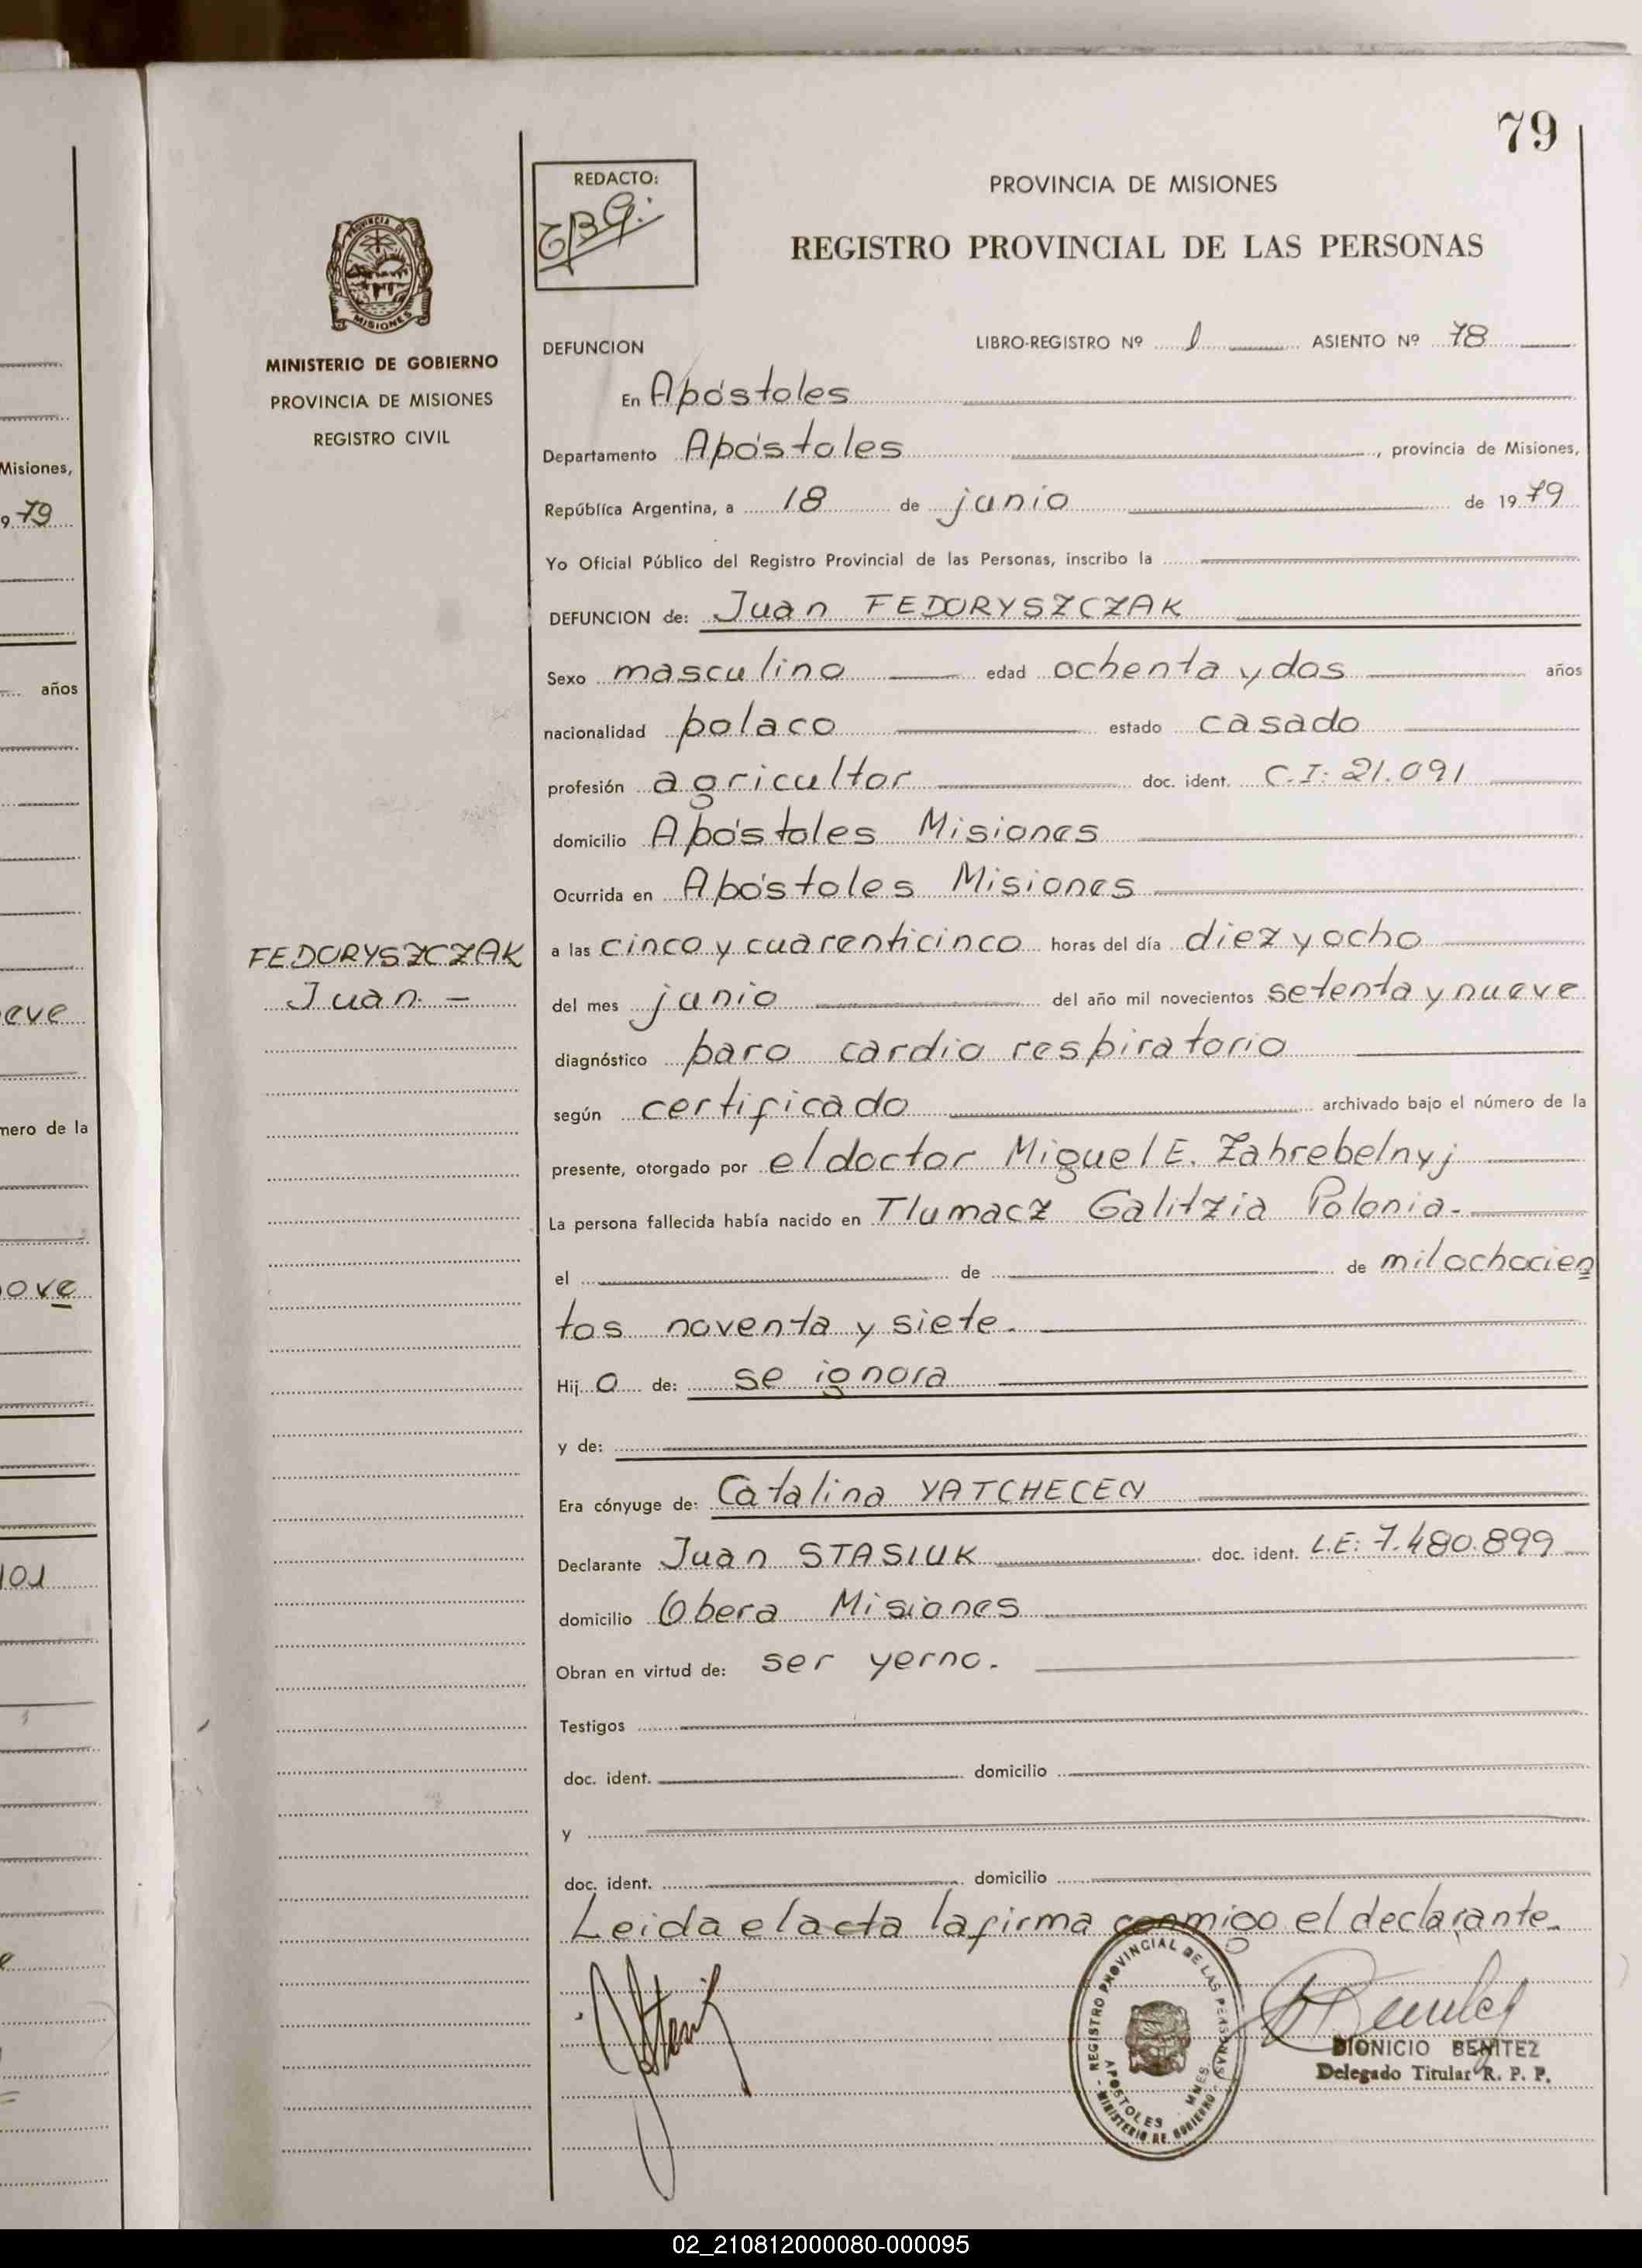 79
REDACTO:
PROVINCIA DE MISIONES
REGISTRO PROVINCIAL DE LAS PERSONAS
PROVINCIA
MISIONES
MINISTERIO DE GOBIERNO
PROVINCIA DE MISIONES
REGISTRO CIVIL
DEFUNCION LIBRO-REGISTRO Nº 1 ASIENTO Nº 78
En Apóstoles
Departamento Apóstoles, provincia de Misiones,
República Argentina, a 18 de junio de 1979
Yo Oficial Público del Registro Provincial de las Personas, inscribo la
DEFUNCION de: Juan FEDORYSZCZAK
Sexo masculino edad ochenta y dos años
nacionalidad polaco estado casado
profesión agricultor doc. ident. C.I: 21.091
domicilio Apóstoles Misiones
Ocurrida en Apóstoles Misiones
FEDORYSZCZAK
Juan. -
a las cinco y cuarenticinco horas del día diez y ocho
del mes junio del año mil novecientos setenta y nueve
diagnóstico paro cardio respiratorio
según certificado archivado bajo el número de la
presente, otorgado por el doctor Miguel E. Zahrebelnyj
La persona fallecida había nacido en Tlumacz Galitzia Polonia.
el de de mil ochocien
tos noventa y siete.
Hijo de: se ignora
y de:
Era cónyuge de: Catalina YATCHECEN
Declarante Juan STASIUK doc. ident. L.E: 7.480.899
domicilio Obera Misiones
Obran en virtud de: ser yerno.
Testigos
doc. ident. domicilio
y
doc. ident. domicilio
Leida el acta la firma conmigo el declarante.
REGISTRO PROVINCIAL DE LAS PERSONAS
APOSTOLES MNES.
MINISTERIO DE GOBIERNO
DIONICIO BENITEZ
Delegado Titular R. P. P.
Misiones,
9 79
años
eve
mero de la
ove
101
02_210812000080-000095